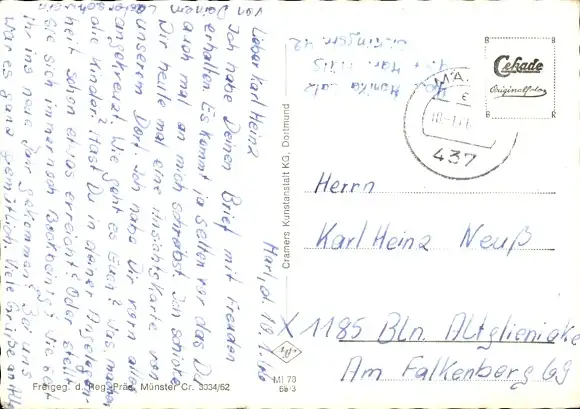 Marl, d. 18.1.66
Lieber Karl Heinz
Ich habe Deinen Brief mit Freuden
erhalten. Es kommt ja selten vor das Du
auch mal an mich schreibst. Ich schicke
Dir heute mal eine Ansichtskarte von
unserem Dorf. Ich habe Dir vorn alles
angekreuzt. Wie geht es Euch? Was machen
die Kinder? Hast Du in deiner Angelegen-
heit schon etwas erreicht? Oder stellt
sie sich immer noch Bockbeinig? Wie seit
ihr ins neue Jahr gekommen? Bei uns
war es ganz gemütlich. Viele Grüße an Alle
von Deinem
Cramers Kunstanstalt KG, Dortmund
Freigeg. d. Reg. Präs. Münster Cr. 3034/62
MI 70
Monika
42
437
Cekade
Originalfoto
B
R
B
R
Herrn
Karl Heinz Neuß
X 1185 Bln. Altglienicke
Am Falkenberg 69